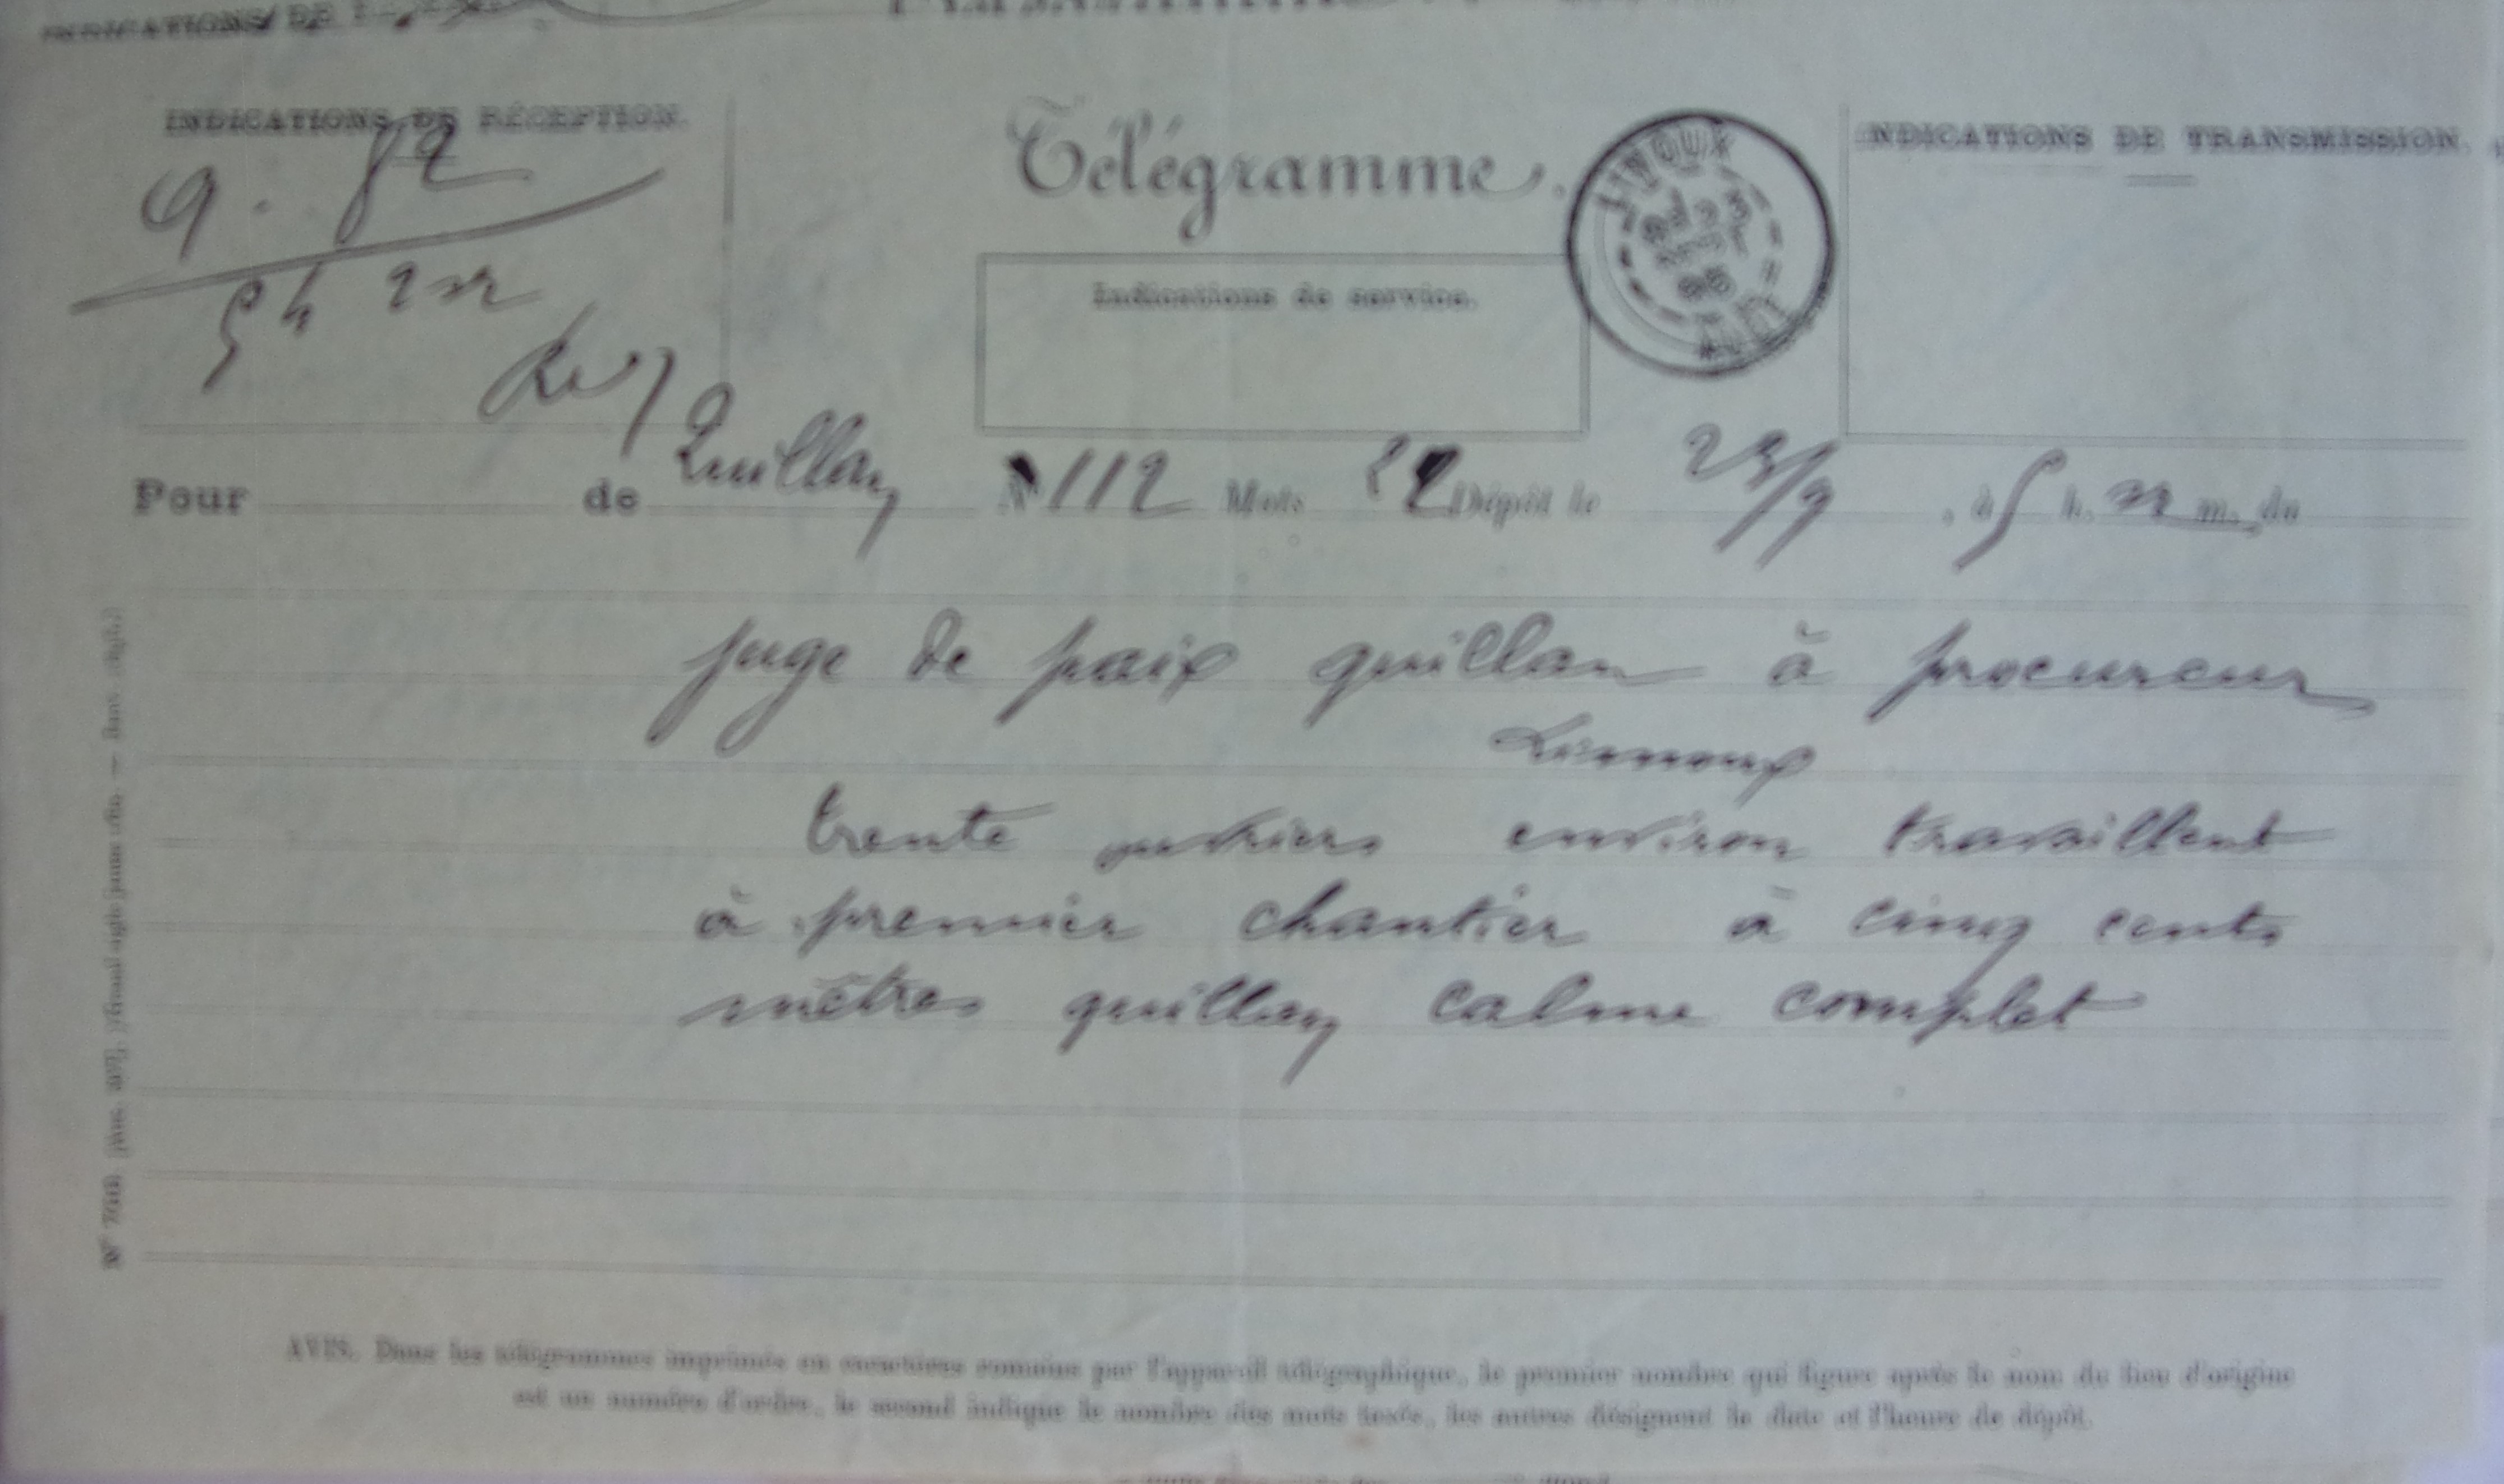 INDICATIONS DE
INDICATIONS DE RÉCEPTION.
Télégramme.
LIMOUX
23
SEPT
AUDE
INDICATIONS DE TRANSMISSION.
Indications de service.
9.
5h
Pour de Quillan N 112 Mots 22 Dépôt le 23/9, à 5 h. m. du
juge de paix quillan à procureur
Limoux
trente ouvriers environ travaillent
à premier chantier à cinq cents
mètres quillan calme complet
AVIS. Dans les télégrammes imprimés en caractères romains par l'appareil télégraphique, le premier nombre qui figure après le nom du lieu d'origine
est un numéro d'ordre, le second indique le nombre des mots taxés, les autres désignent la date et l'heure de dépôt.